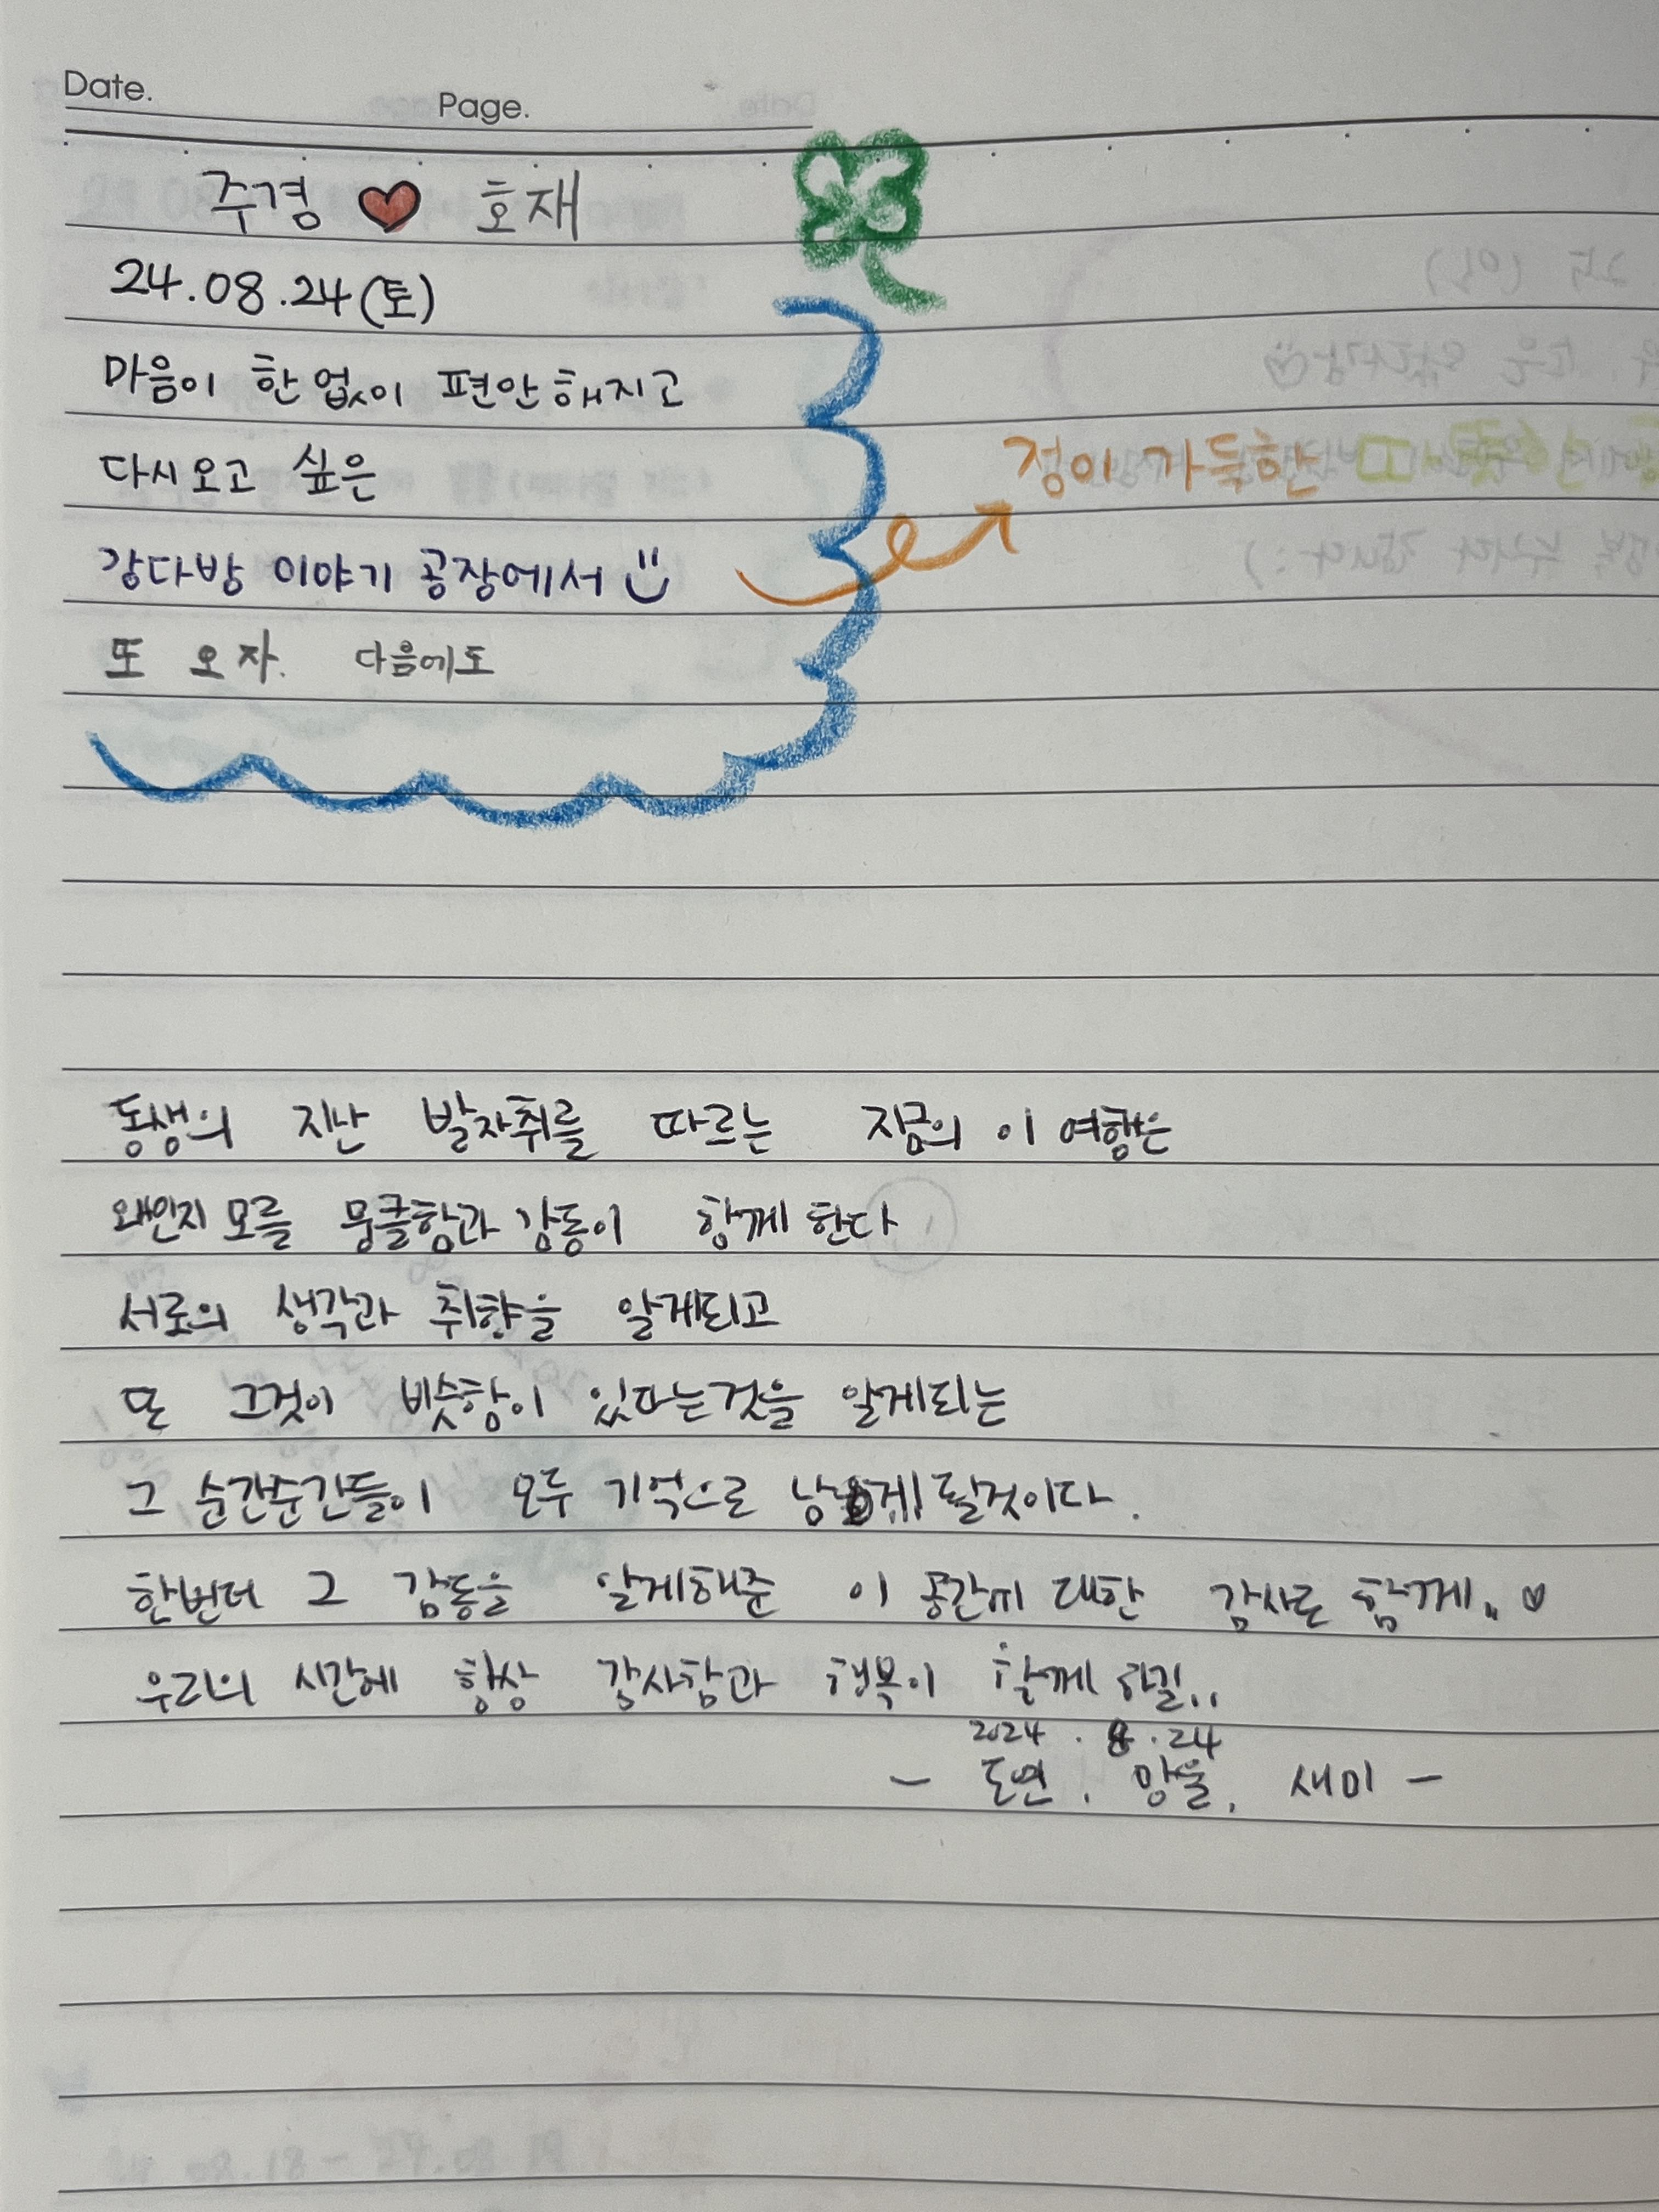 Date.
Page.
주경 ♥ 호재
24.08.24(토)
마음이 한없이 편안해지고
다시오고 싶은
정이 가득한
강다방 이야기 공장에서
또 오자. 다음에도
동생의 지난 발자취를 따르는 지금의 이 여행은
왜인지 모를 뭉클함과 감동이 함께 한다
서로의 생각과 취향을 알게되고
또 그것이 비슷함이 있다는것을 알게되는
그 순간순간들이 모두 기억으로 남게 될것이다.
한번더 그 감동을 알게해준 이 공간에 대한 감사로 함께.. ♡
우리의 시간에 항상 감사함과 행복이 함께 하길..
2024 . 8 . 24
- 도연, 망울, 새미 -